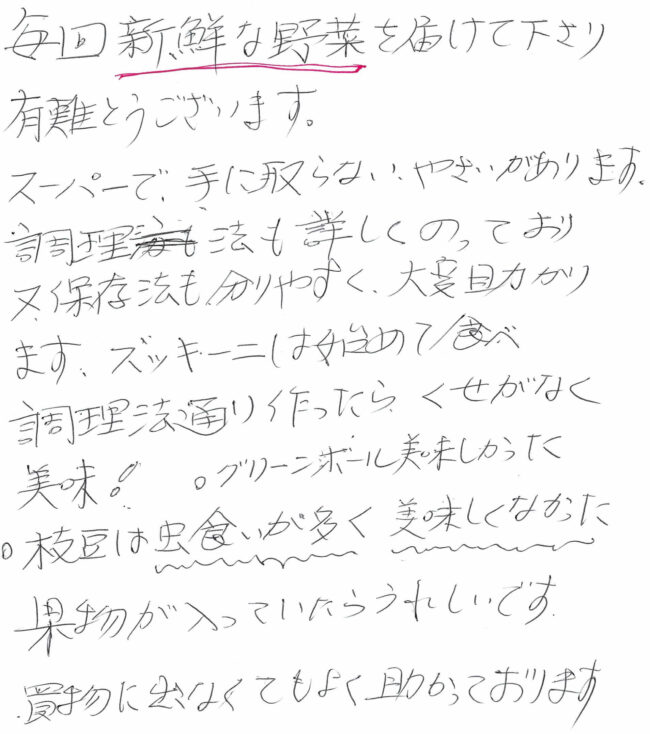 毎回新鮮な野菜を届けて下さり
有難とうございます。
スーパーで、手に取らない、やさいがあります。
調理法も詳しくのっており
又、保存法も分りやすく、大変助かり
ます、ズッキーニは始めて食べ
調理法通り作ったら、くせがなく
美味!　○グリーンボール美味しかった
○枝豆は虫食いが多く 美味しくなかった
果物が入っていたらうれしいです。
買物に出なくてもよく助かっております